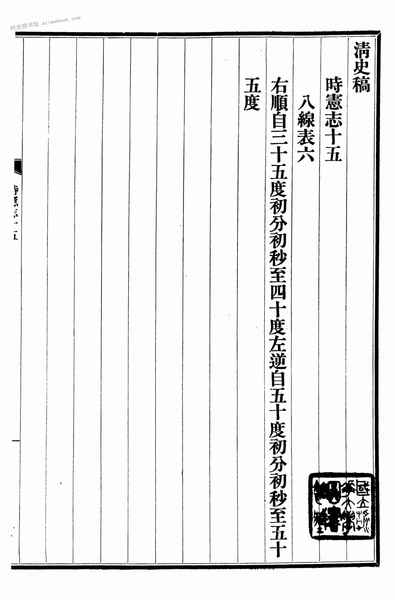 清史稿
時憲志十五
八線表六
右順自三十五度初分初秒至四十度左逆自五十度初分初秒至五十
五度
時憲志十五
一